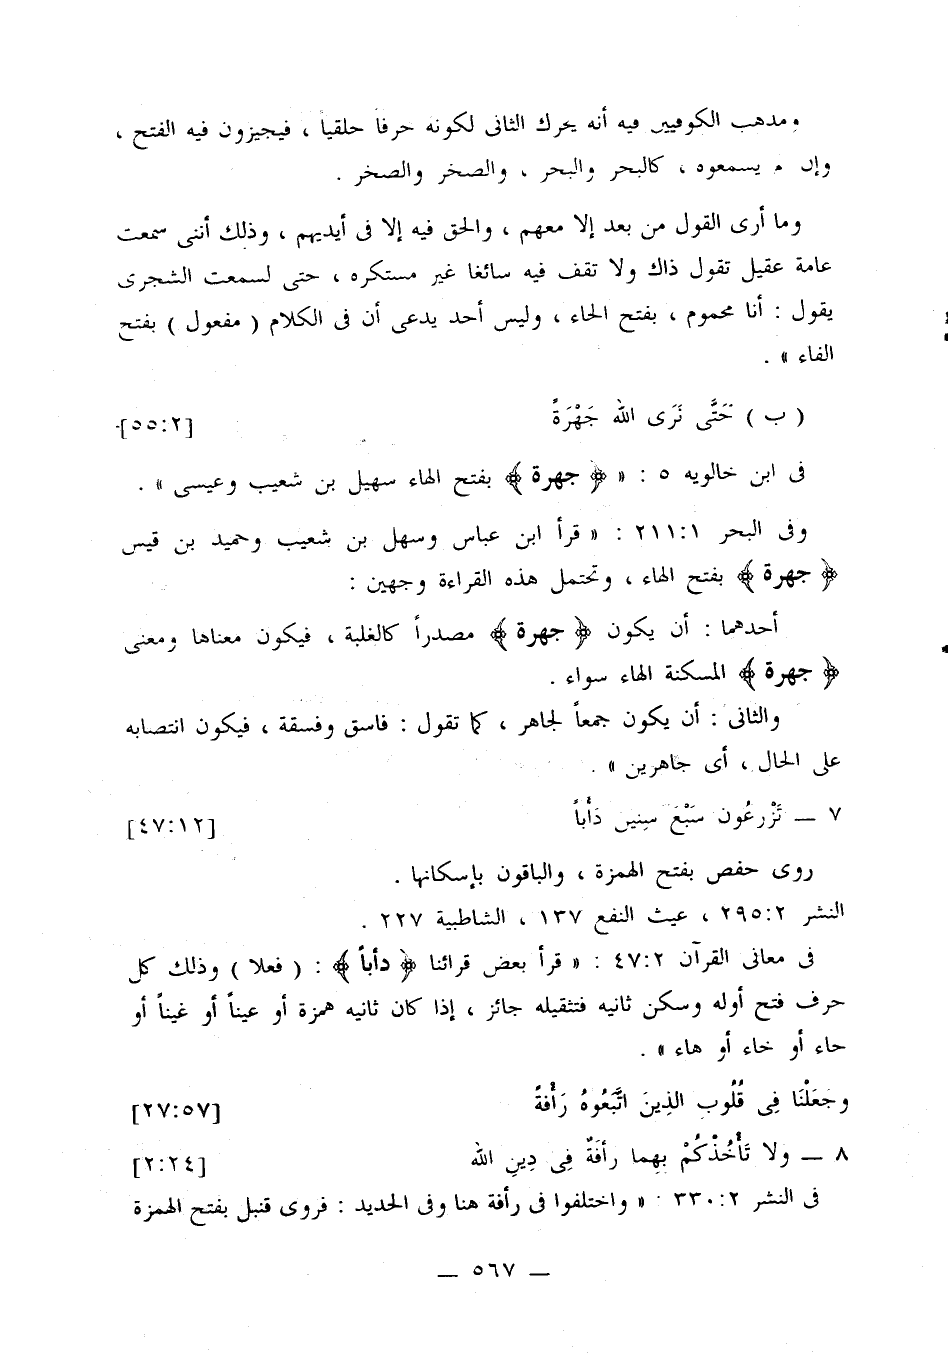 ومذهب الكوفيين فيه أنه يحرك الثانى لكونه حرفا حلقيا ، فيجيزون فيه الفتح ،
وإن لم يسمعوه ، كالبحر والبحر ، والصخر والصخر .
وما أرى القول من بعد إلا معهم ، والحق فيه إلا فى أيديهم ، وذلك أننى سمعت
عامة عقيل تقول ذاك ولا تقف فيه سائغا غير مستكره ، حتى لسمعت الشجرى
يقول : أنا محموم ، بفتح الحاء ، وليس أحد يدعى أن فى الكلام ( مفعول ) بفتح
الفاء » .
( ب ) حَتَّى نَرَى الله جَهْرَةً [٥٥:٢]
فى ابن خالويه ٥ : « ﴿ جهرة ﴾ بفتح الهاء سهيل بن شعيب وعيسى » .
وفى البحر ٢١١:١ : « قرأ ابن عباس وسهل بن شعيب وحميد بن قيس
﴿ جهرة ﴾ بفتح الهاء ، وتحتمل هذه القراءة وجهين :
أحدهما : أن يكون ﴿ جهرة ﴾ مصدراً كالغلبة ، فيكون معناها ومعنى
﴿ جهرة ﴾ المسكنة الهاء سواء .
والثانى : أن يكون جمعاً لجاهر ، كما تقول : فاسق وفسقة ، فيكون انتصابه
على الحال ، أى جاهرين » .
٧ — تَزْرعُون سَبْعَ سِنِين دَأْباً [٤٧:١٢]
روى حفص بفتح الهمزة ، والباقون بإسكانها .
النشر ٢٩٥:٢ ، غيث النفع ١٣٧ ، الشاطبية ٢٢٧ .
فى معانى القرآن ٤٧:٢ : « قرأ بعض قرائنا ﴿ دأباً ﴾ : ( فعلا ) وذلك كل
حرف فتح أوله وسكن ثانيه فتثقيله جائز ، إذا كان ثانيه همزة أو عيناً أو غيناً أو
حاء أو خاء أو هاء » .
وجَعَلْنَا فِى قُلُوبِ الذِينَ اتَّبَعُوهُ رَأْفةً [٢٧:٥٧]
٨ — ولا تَأْخُذْكُمْ بِهِما رأفَةٌ فِى دِينِ الله [٢:٢٤]
فى النشر ٣٣٠:٢ : « واختلفوا فى رأفة هنا وفى الحديد : فروى قنبل بفتح الهمزة
— ٥٦٧ —